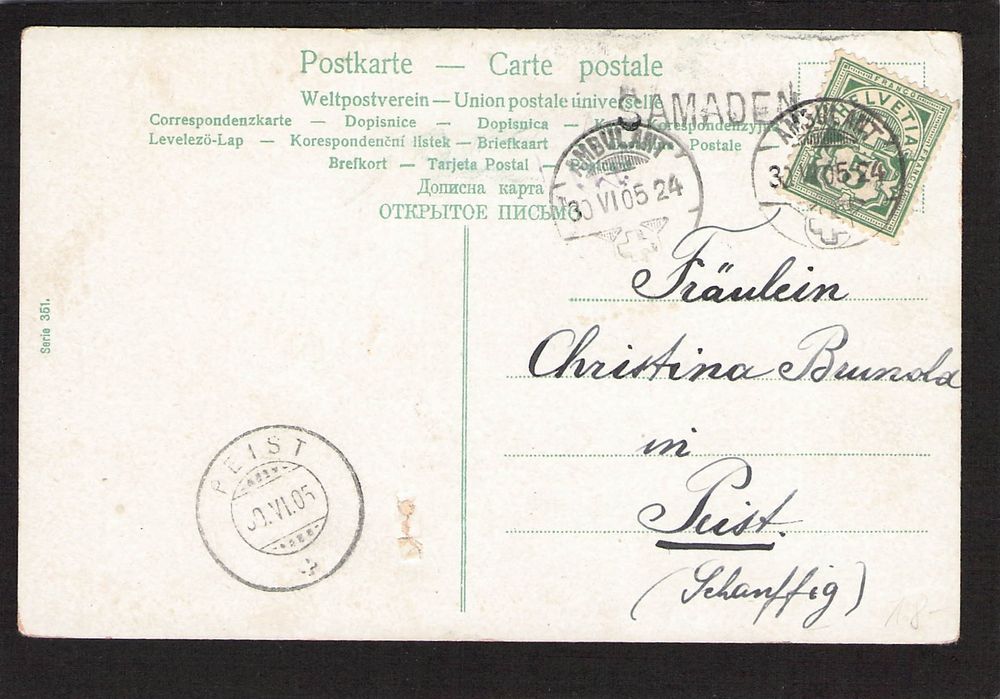 Postkarte — Carte postale
Weltpostverein — Union postale universelle
SAMADEN
Correspondenzkarte — Dopisnice — Dopisnica —
Levelező-Lap — Korespondenční listek — Briefkaart Postale
Brefkort — Tarjeta Postal —
Дописна карта
ОТКРЫТОЕ ПИСЬМО
AMBULANT
30 VI 05 24
AMBULANT
30 VI 05 24
FRANCO
HELVETIA
FRANCO
5
Fräulein
Christina Brunold
in
Peist.
(Schanffig)
Serie 351.
PEIST
30.VI.05
18-